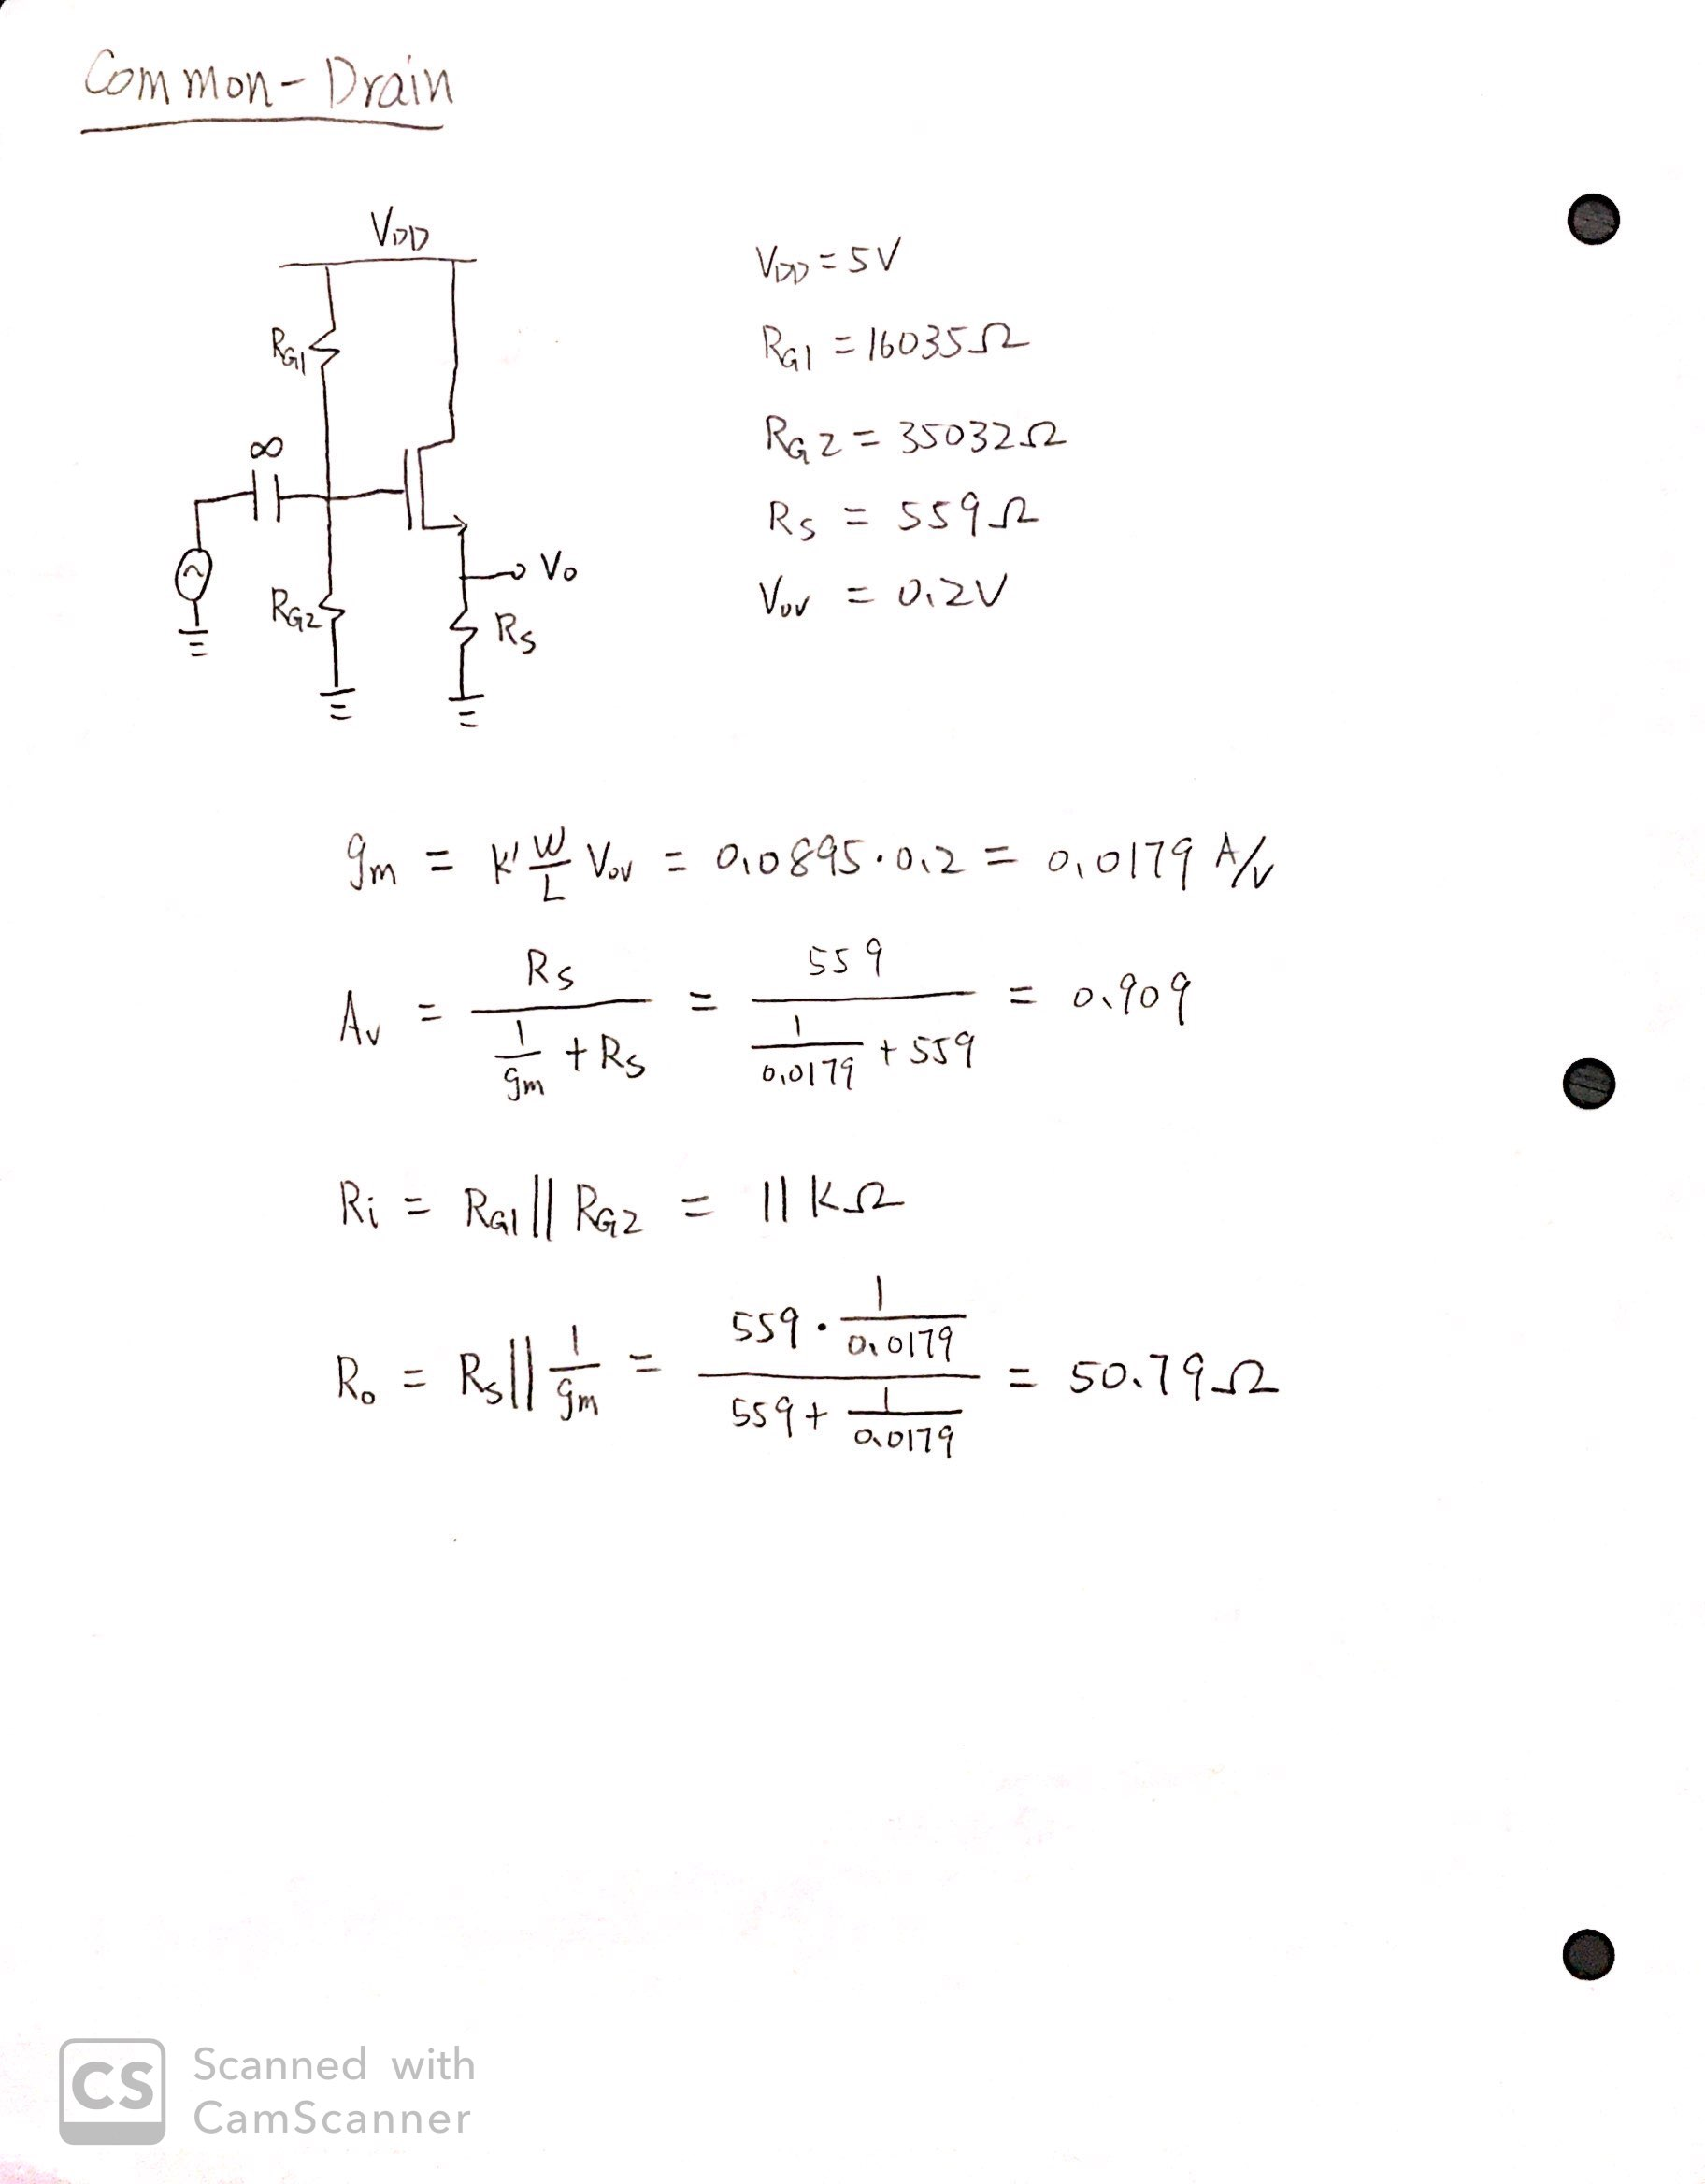 Common-Drain
VDD
VDD = 5V
RG1
RG1 = 16035Ω
∞
RG2 = 35032Ω
RS = 559Ω
Vo
RG2
RS
Vov = 0.2V
gm = K' W/L Vov = 0.0895·0.2 = 0.0179 A/V
Av = RS / (1/gm + RS) = 559 / (1/0.0179 + 559) = 0.909
Ri = RG1 || RG2 = 11KΩ
Ro = RS || 1/gm = (559 · 1/0.0179) / (559 + 1/0.0179) = 50.79Ω
CS
Scanned with
CamScanner